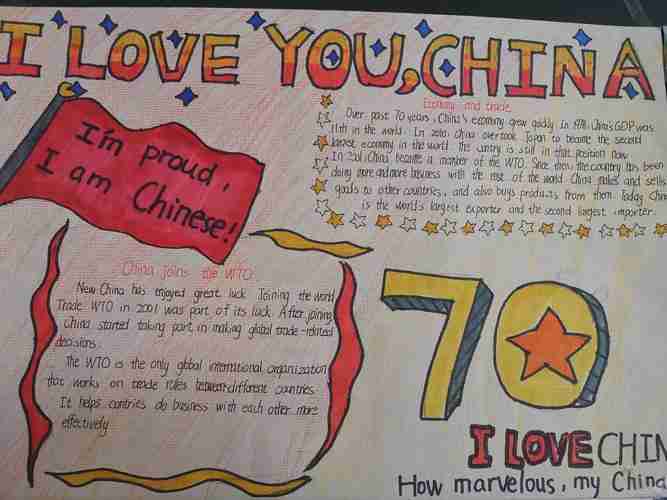 I LOVE YOU, CHINA
I'm proud,
I am Chinese!
Economy and trade
Over past 70 years, China's economy grew quickly. In 1978, China's GDP was
11th in the world. In 2010, China overtook Japan to become the second
largest economy in the world. The cuntry is still in that position now.
In 2001, China became a member of the WTO. Since then, the country has been
doing more and more business with the rest of the world. China makes and sells
goods to other countries, and also buys products from them. Today, China
is the world's largest exporter and the second largest importer.
China joins the WTO
New China has enjoyed great luck. Joining the world
Trade WTO in 2001 was part of its luck. After joining,
China started taking part in making global trade-related
decisions.
The WTO is the only global international organization
that works on trade rules between different countries.
It helps contries do business with each other more
effectively
70
I LOVE CHIN
How marvelous, my China